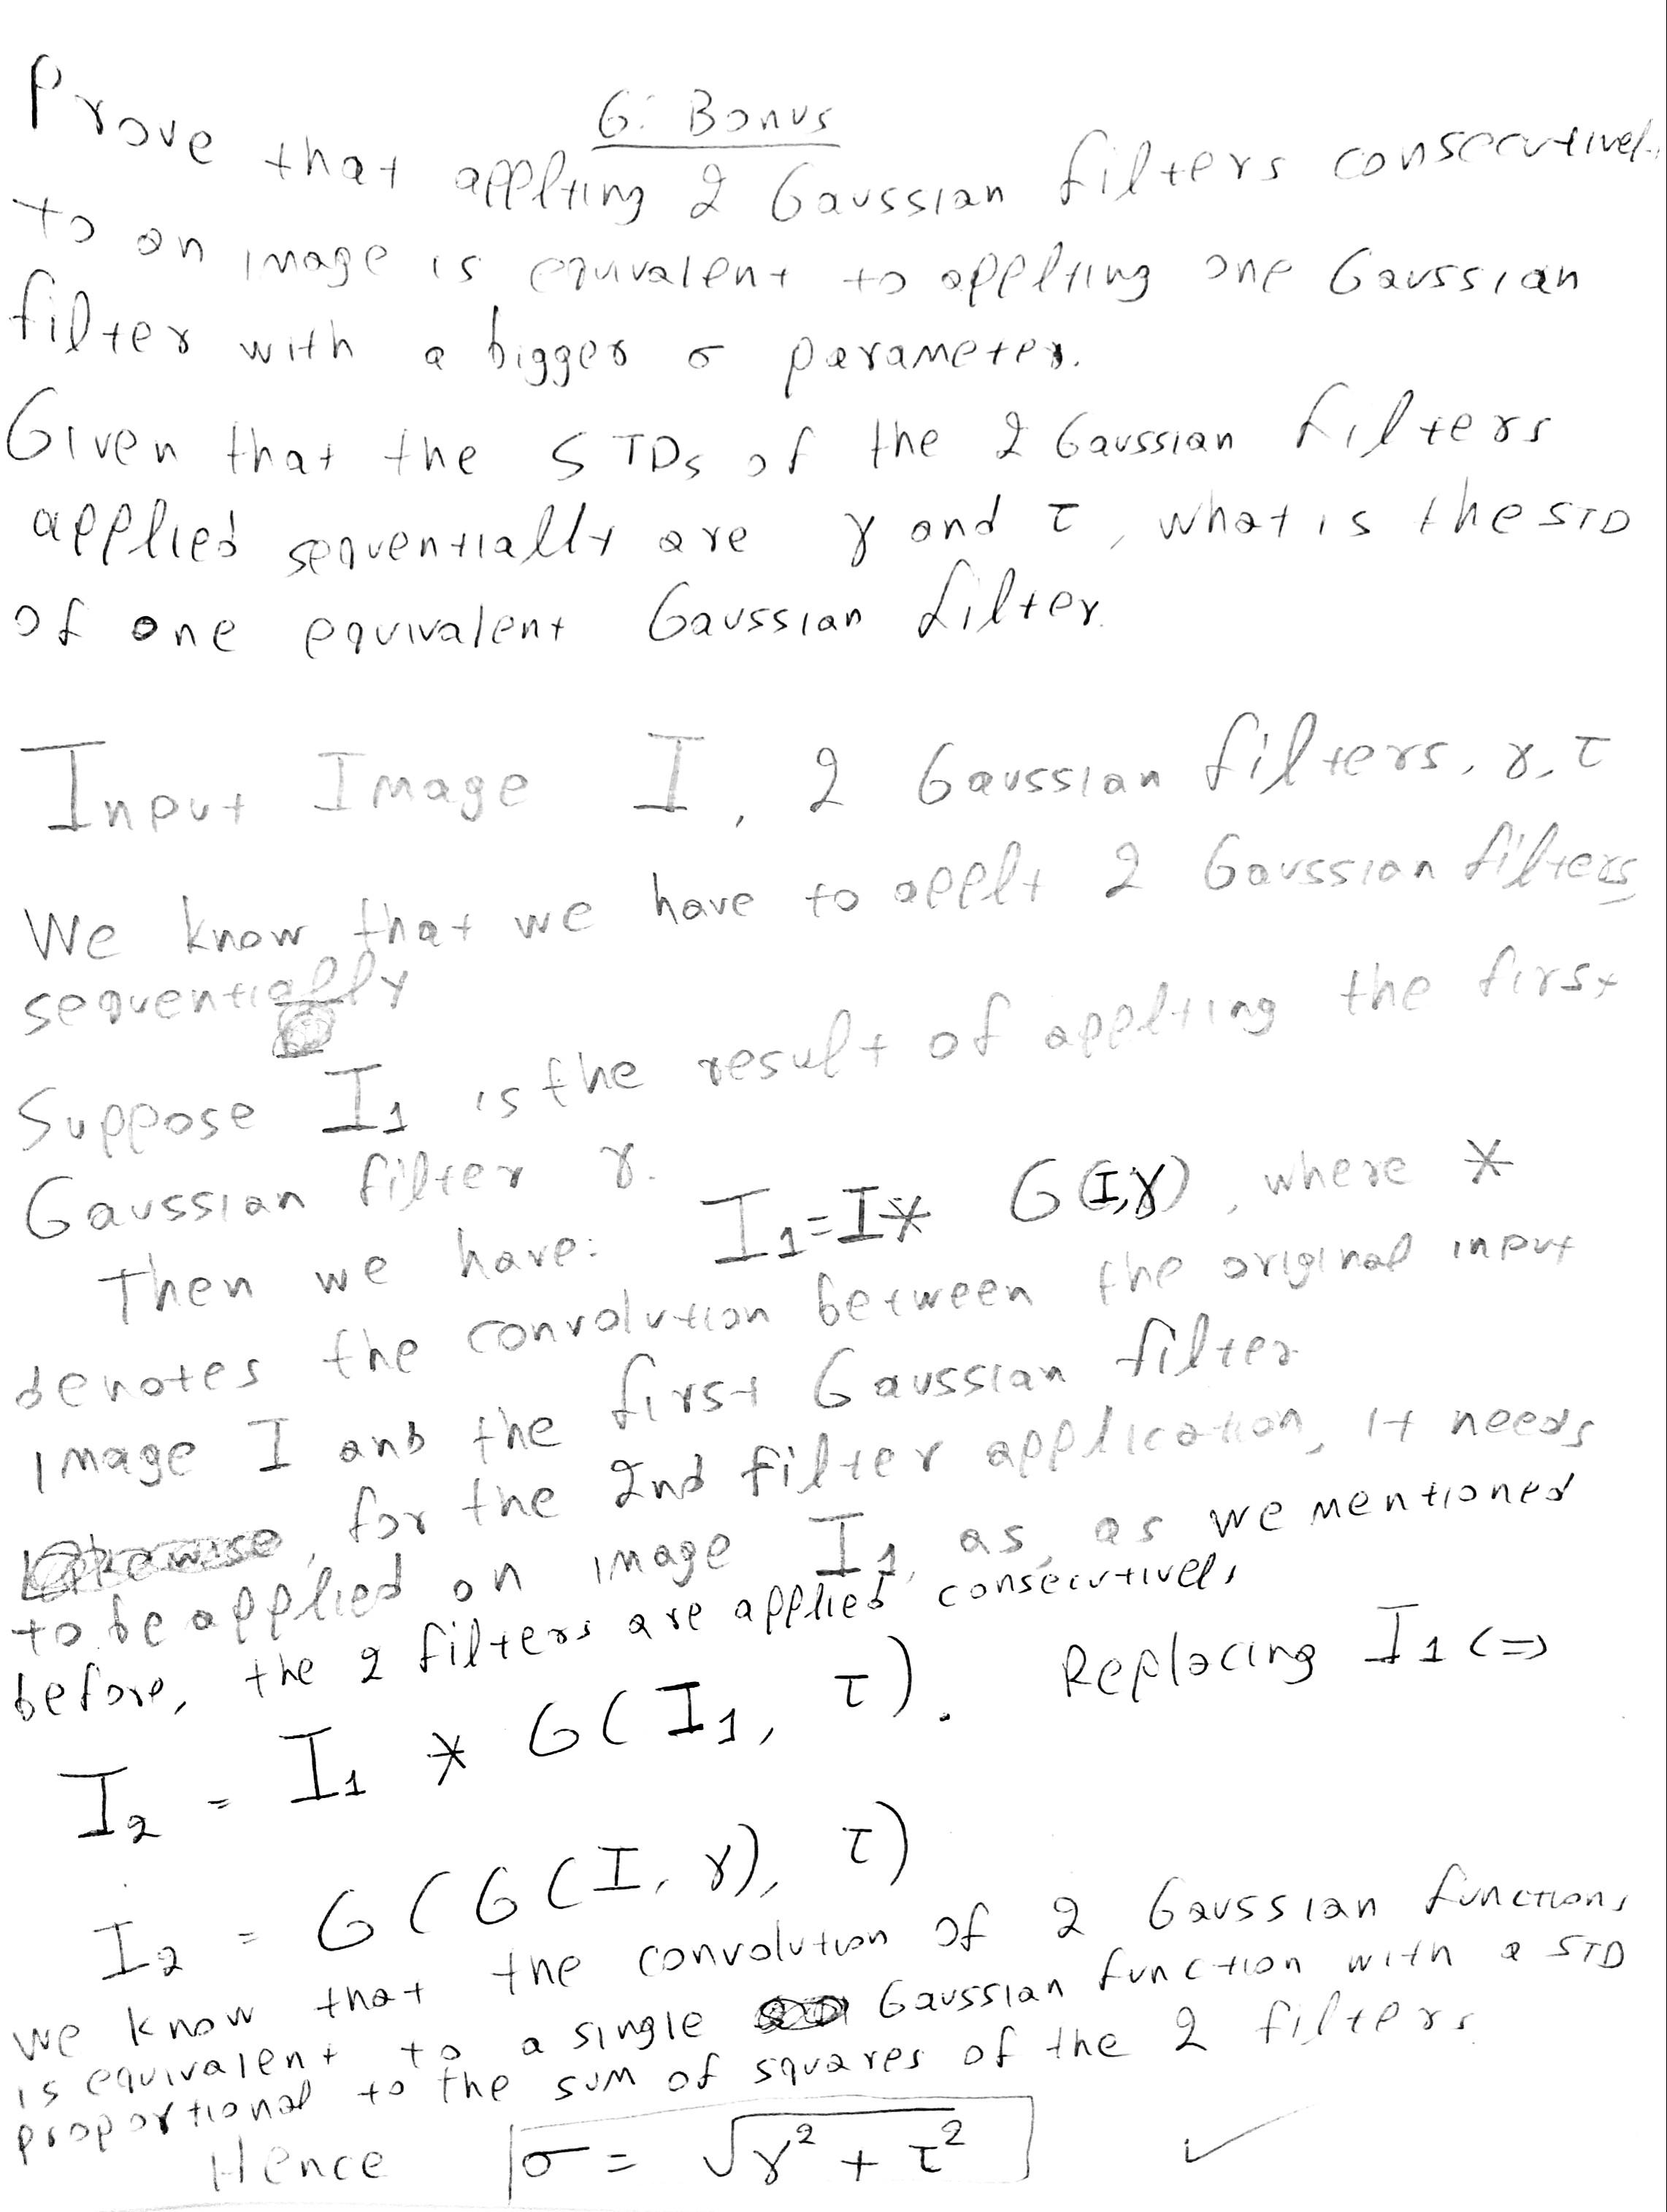 6: Bonus
Prove that applying 2 Gaussian filters consecutively
to an image is equivalent to applying one Gaussian
filter with a bigger σ parameter.
Given that the STDs of the 2 Gaussian filters
applied sequentially are γ and τ, what is the STD
of one equivalent Gaussian filter.
Input Image I, 2 Gaussian filters, γ, τ
We know that we have to apply 2 Gaussian filters
sequentially
Suppose I₁ is the result of applying the first
Gaussian filter γ.
Then we have: I₁ = I * G(I,γ), where *
denotes the convolution between the original input
image I and the first Gaussian filter
for the 2nd filter application, it needs
to be applied on image I₁, as, as we mentioned
before, the 2 filters are applied consecutively
I₂ = I₁ * G(I₁, τ). Replacing I₁ <=>
I₂ = G(G(I, γ), τ)
we know that the convolution of 2 Gaussian functions
is equivalent to a single Gaussian function with a STD
proportional to the sum of squares of the 2 filters.
Hence σ = √(γ² + τ²) ✓